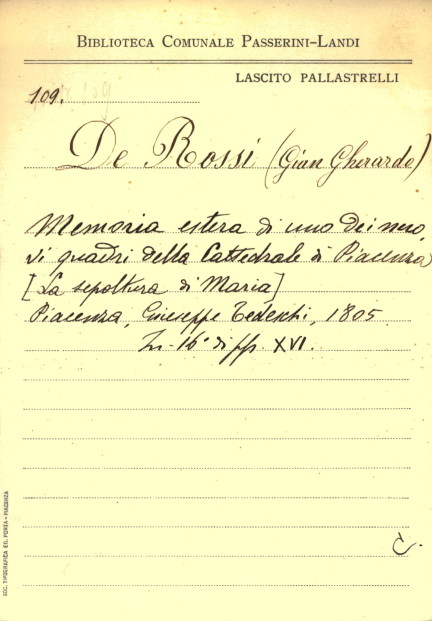 BIBLIOTECA COMUNALE PASSERINI-LANDI
LASCITO PALLASTRELLI
109.
De Rossi (Gian Gherardo)
Memoria estera di uno dei nuo
vi quadri della Cattedrale di Piacenza
[La sepoltura di Maria]
Piacenza, Giuseppe Tedeschi, 1805
In-16° di pp. XVI.
C.
SOC. TIPOGRAFICA ED. PORTA - PIACENZA